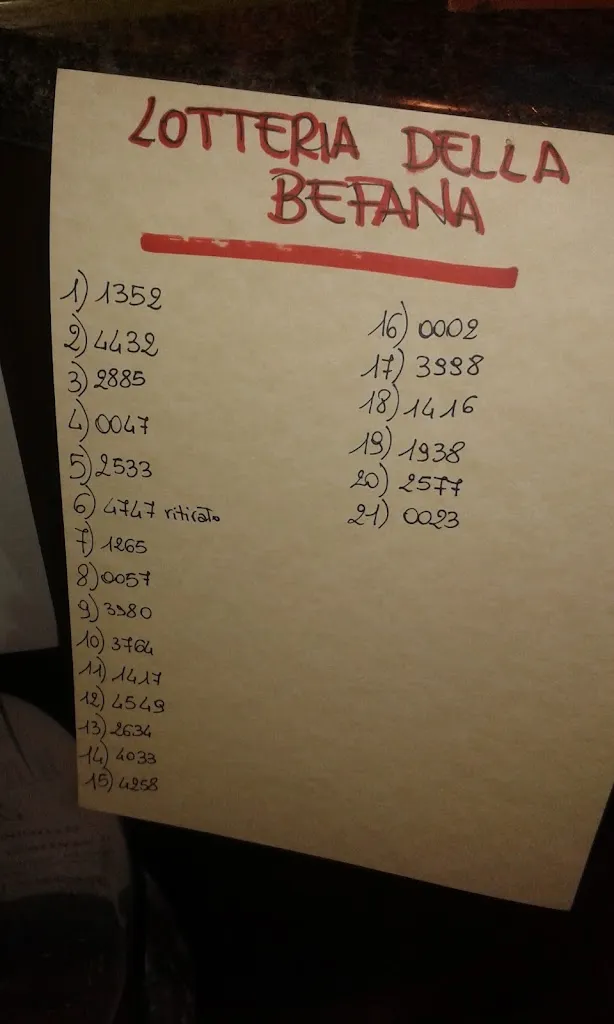 LOTTERIA DELLA
BEFANA
1) 1352
2) 4432
3) 2885
4) 0047
5) 2533
6) 4747 ritirato
7) 1265
8) 0057
9) 3980
10) 3764
11) 1417
12) 4549
13) 2634
14) 4033
15) 4258
16) 0002
17) 3998
18) 1416
19) 1938
20) 2577
21) 0023